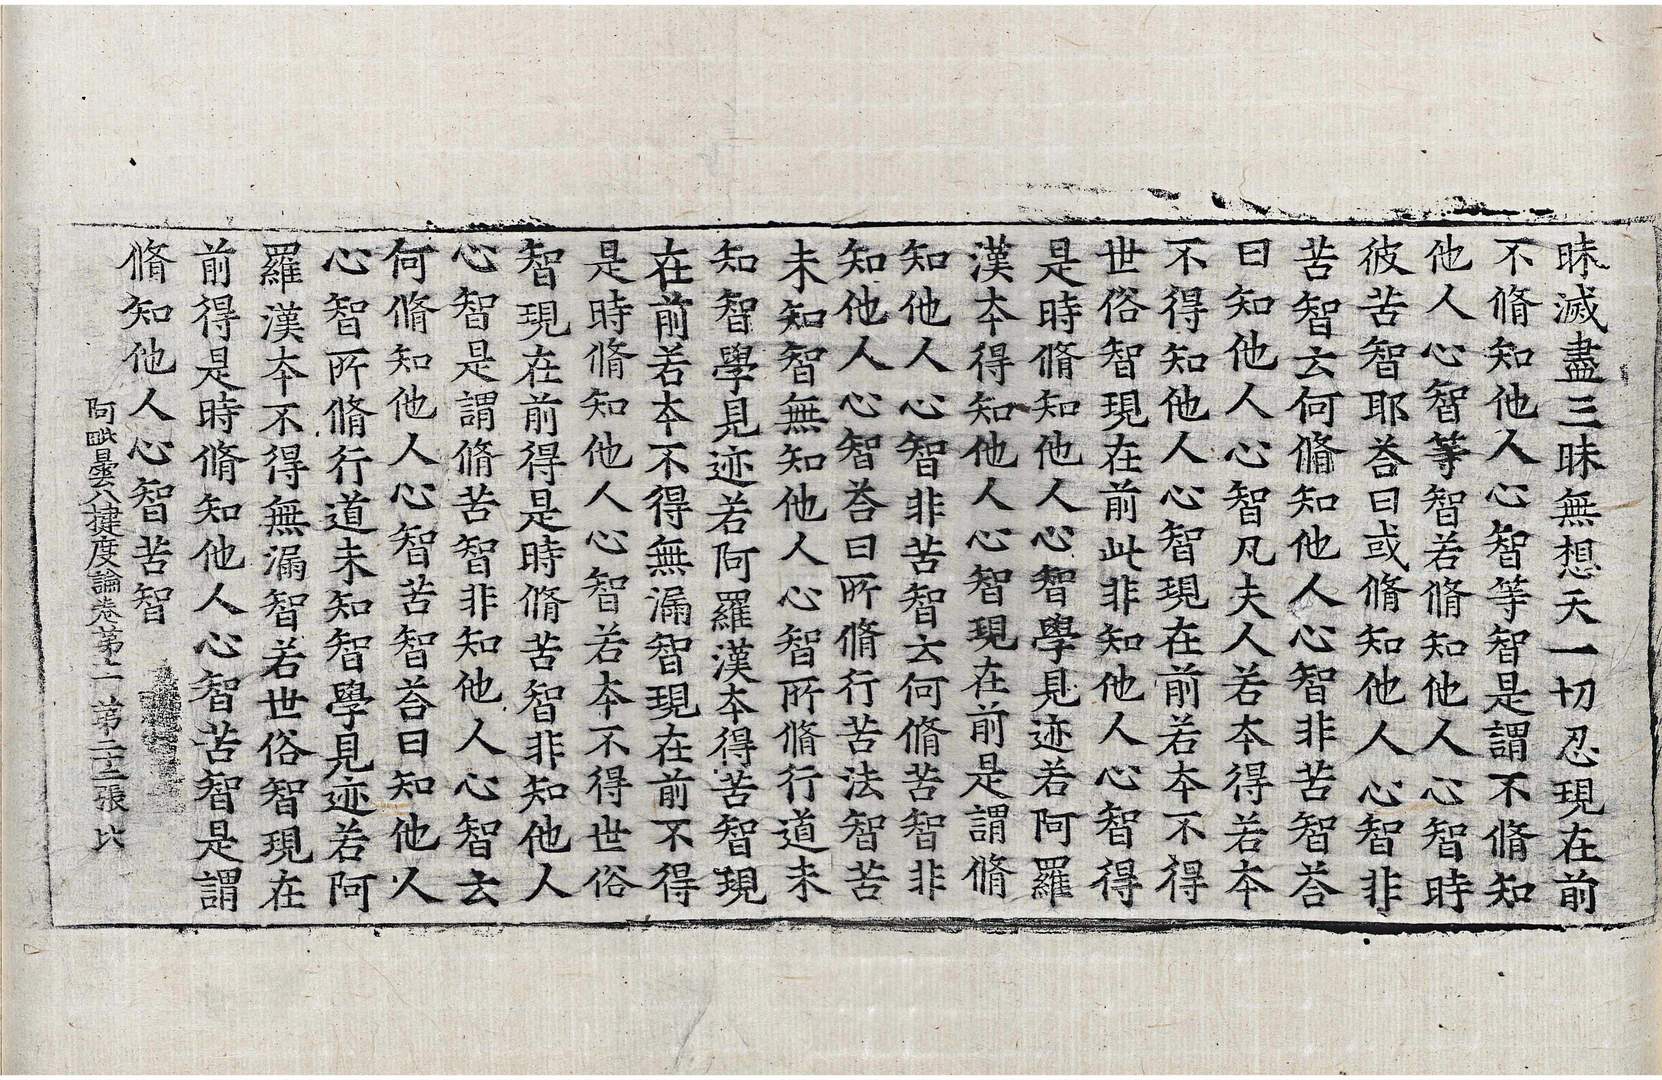 昧滅盡三昧無想天一切忍現在前
不脩知他人心智等智是謂不脩知
他人心智等智若脩知他人心智時
彼苦智耶荅曰或脩知他人心智非
苦智云何脩知他人心智非苦智荅
曰知他人心智凡夫人若本得若本
不得知他人心智現在前若本不得
世俗智現在前此非知他人心智得
是時脩知他人心智學見迹若阿羅
漢本得知他人心智現在前是謂脩
知他人心智非苦智云何脩苦智非
知他人心智荅曰所脩行苦法智苦
未知智無知他人心智所脩行道未
知智學見迹若阿羅漢本得苦智現
在前若本不得無漏智現在前不得
是時脩知他人心智若本不得世俗
智現在前得是時脩苦智非知他人
心智是謂脩苦智非知他人心智云
何脩知他人心智苦智荅曰知他人
心智所脩行道未知智學見迹若阿
羅漢本不得無漏智若世俗智現在
前得是時脩知他人心智苦智是謂
脩知他人心智苦智
阿毗曇八揵度論卷第十一 第二十二張 比